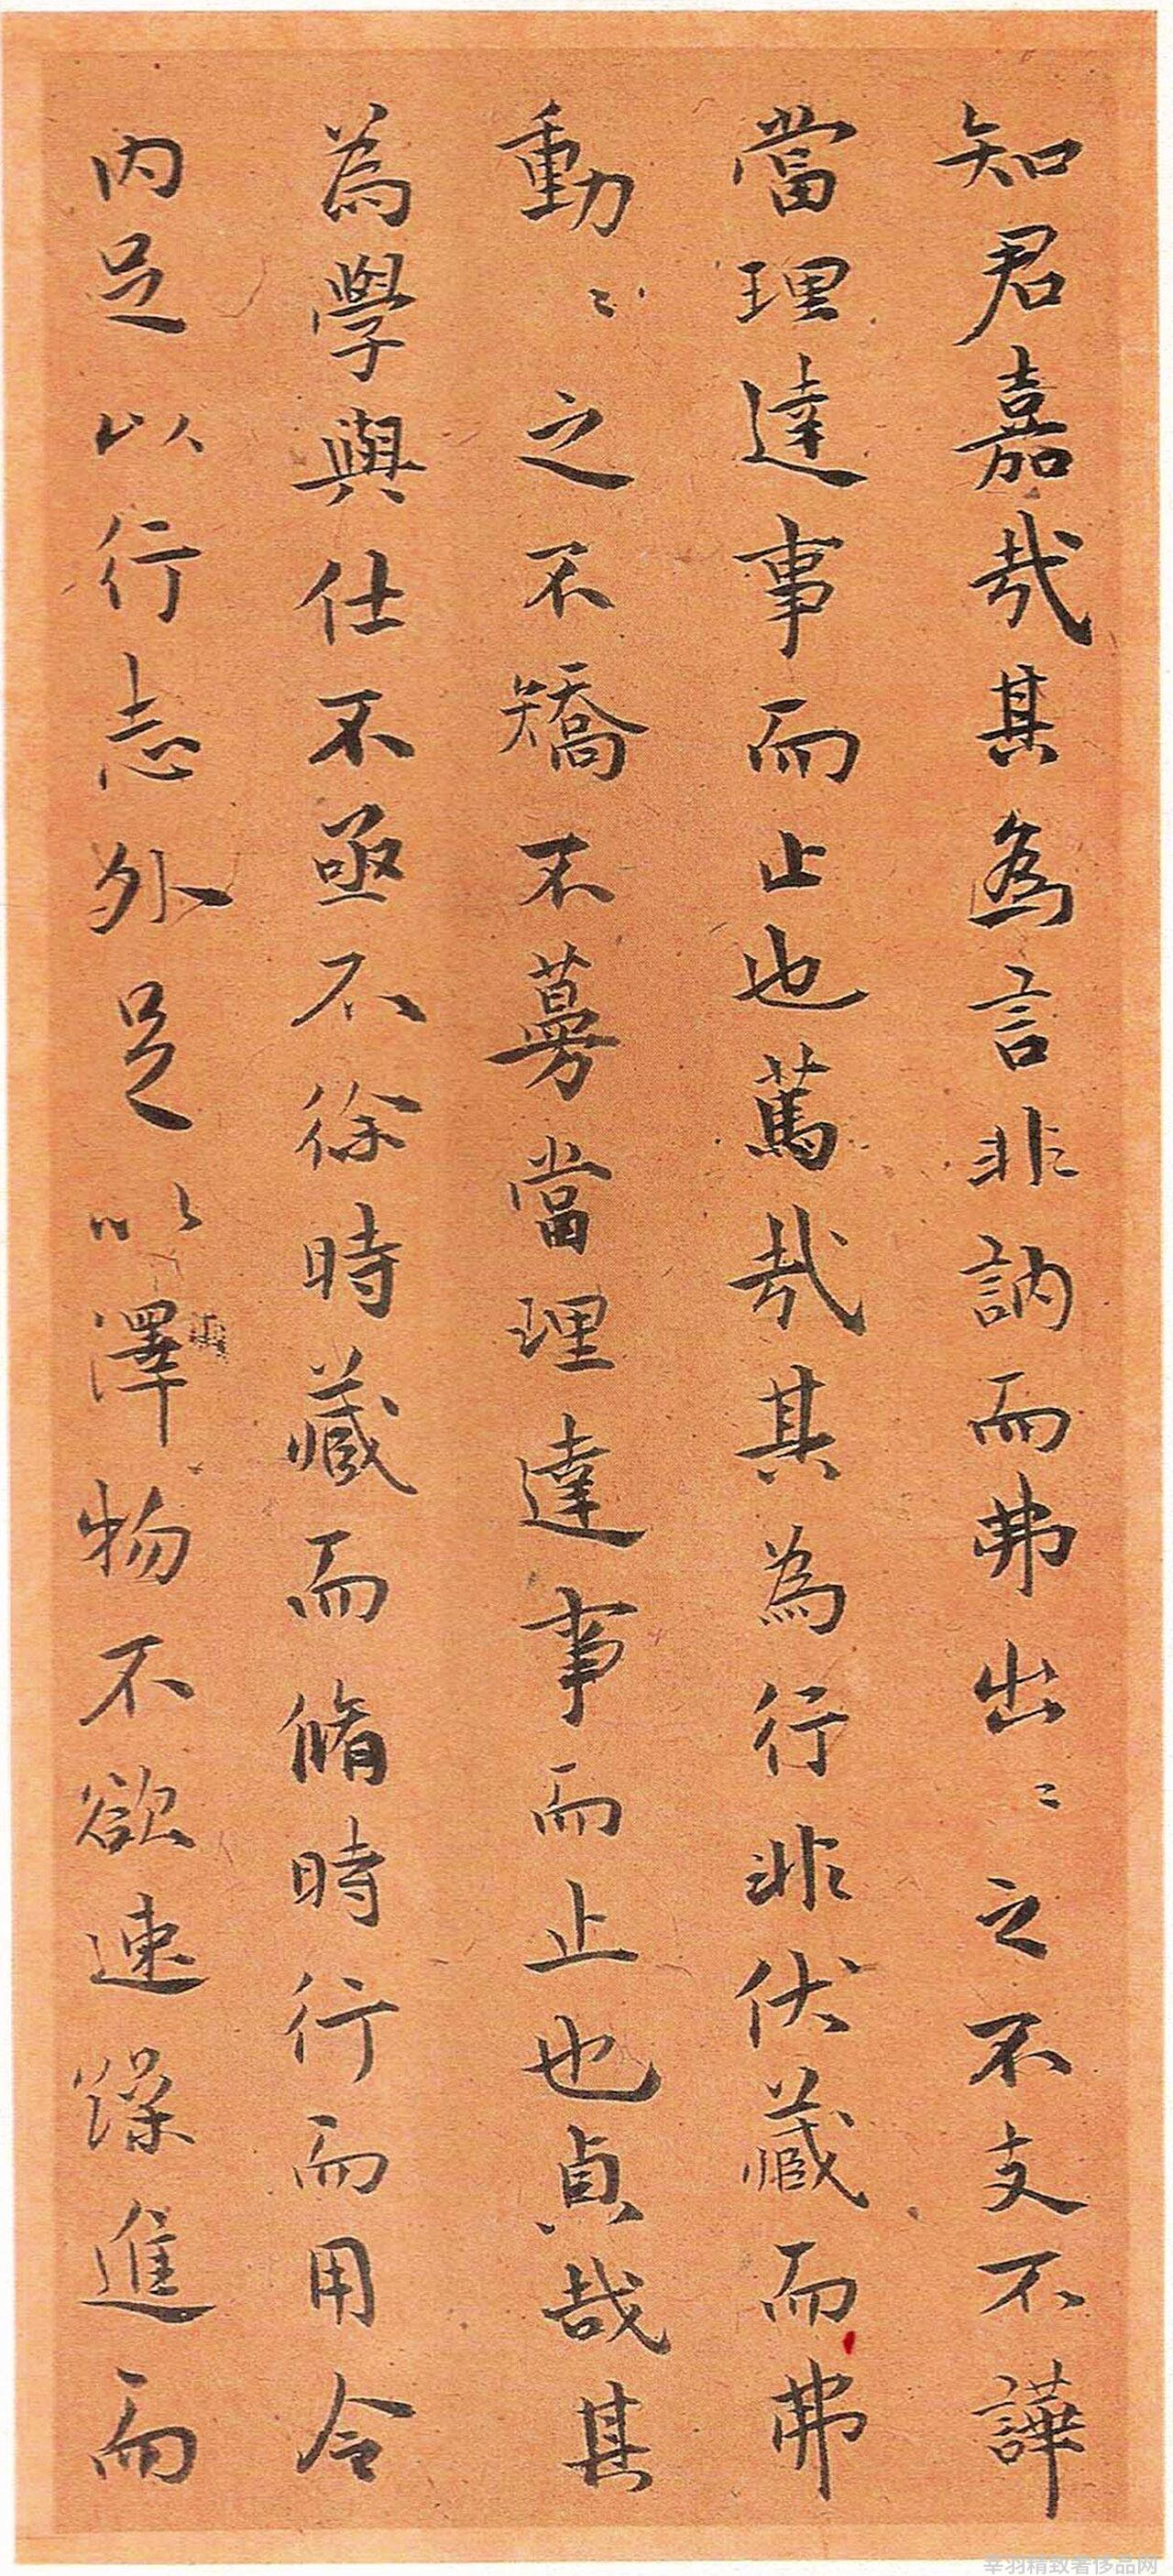 知君嘉哉其為言非訥而弗出〻之不支不譁
當理達事而止也篤哉其為行非伏藏而弗
動〻之不矯不募當理達事而止也貞哉其
為學與仕不亟不徐時藏而脩時行而用令
内足以行志外足以澤物不欲速躁進而
幸羽精致奢侈品网